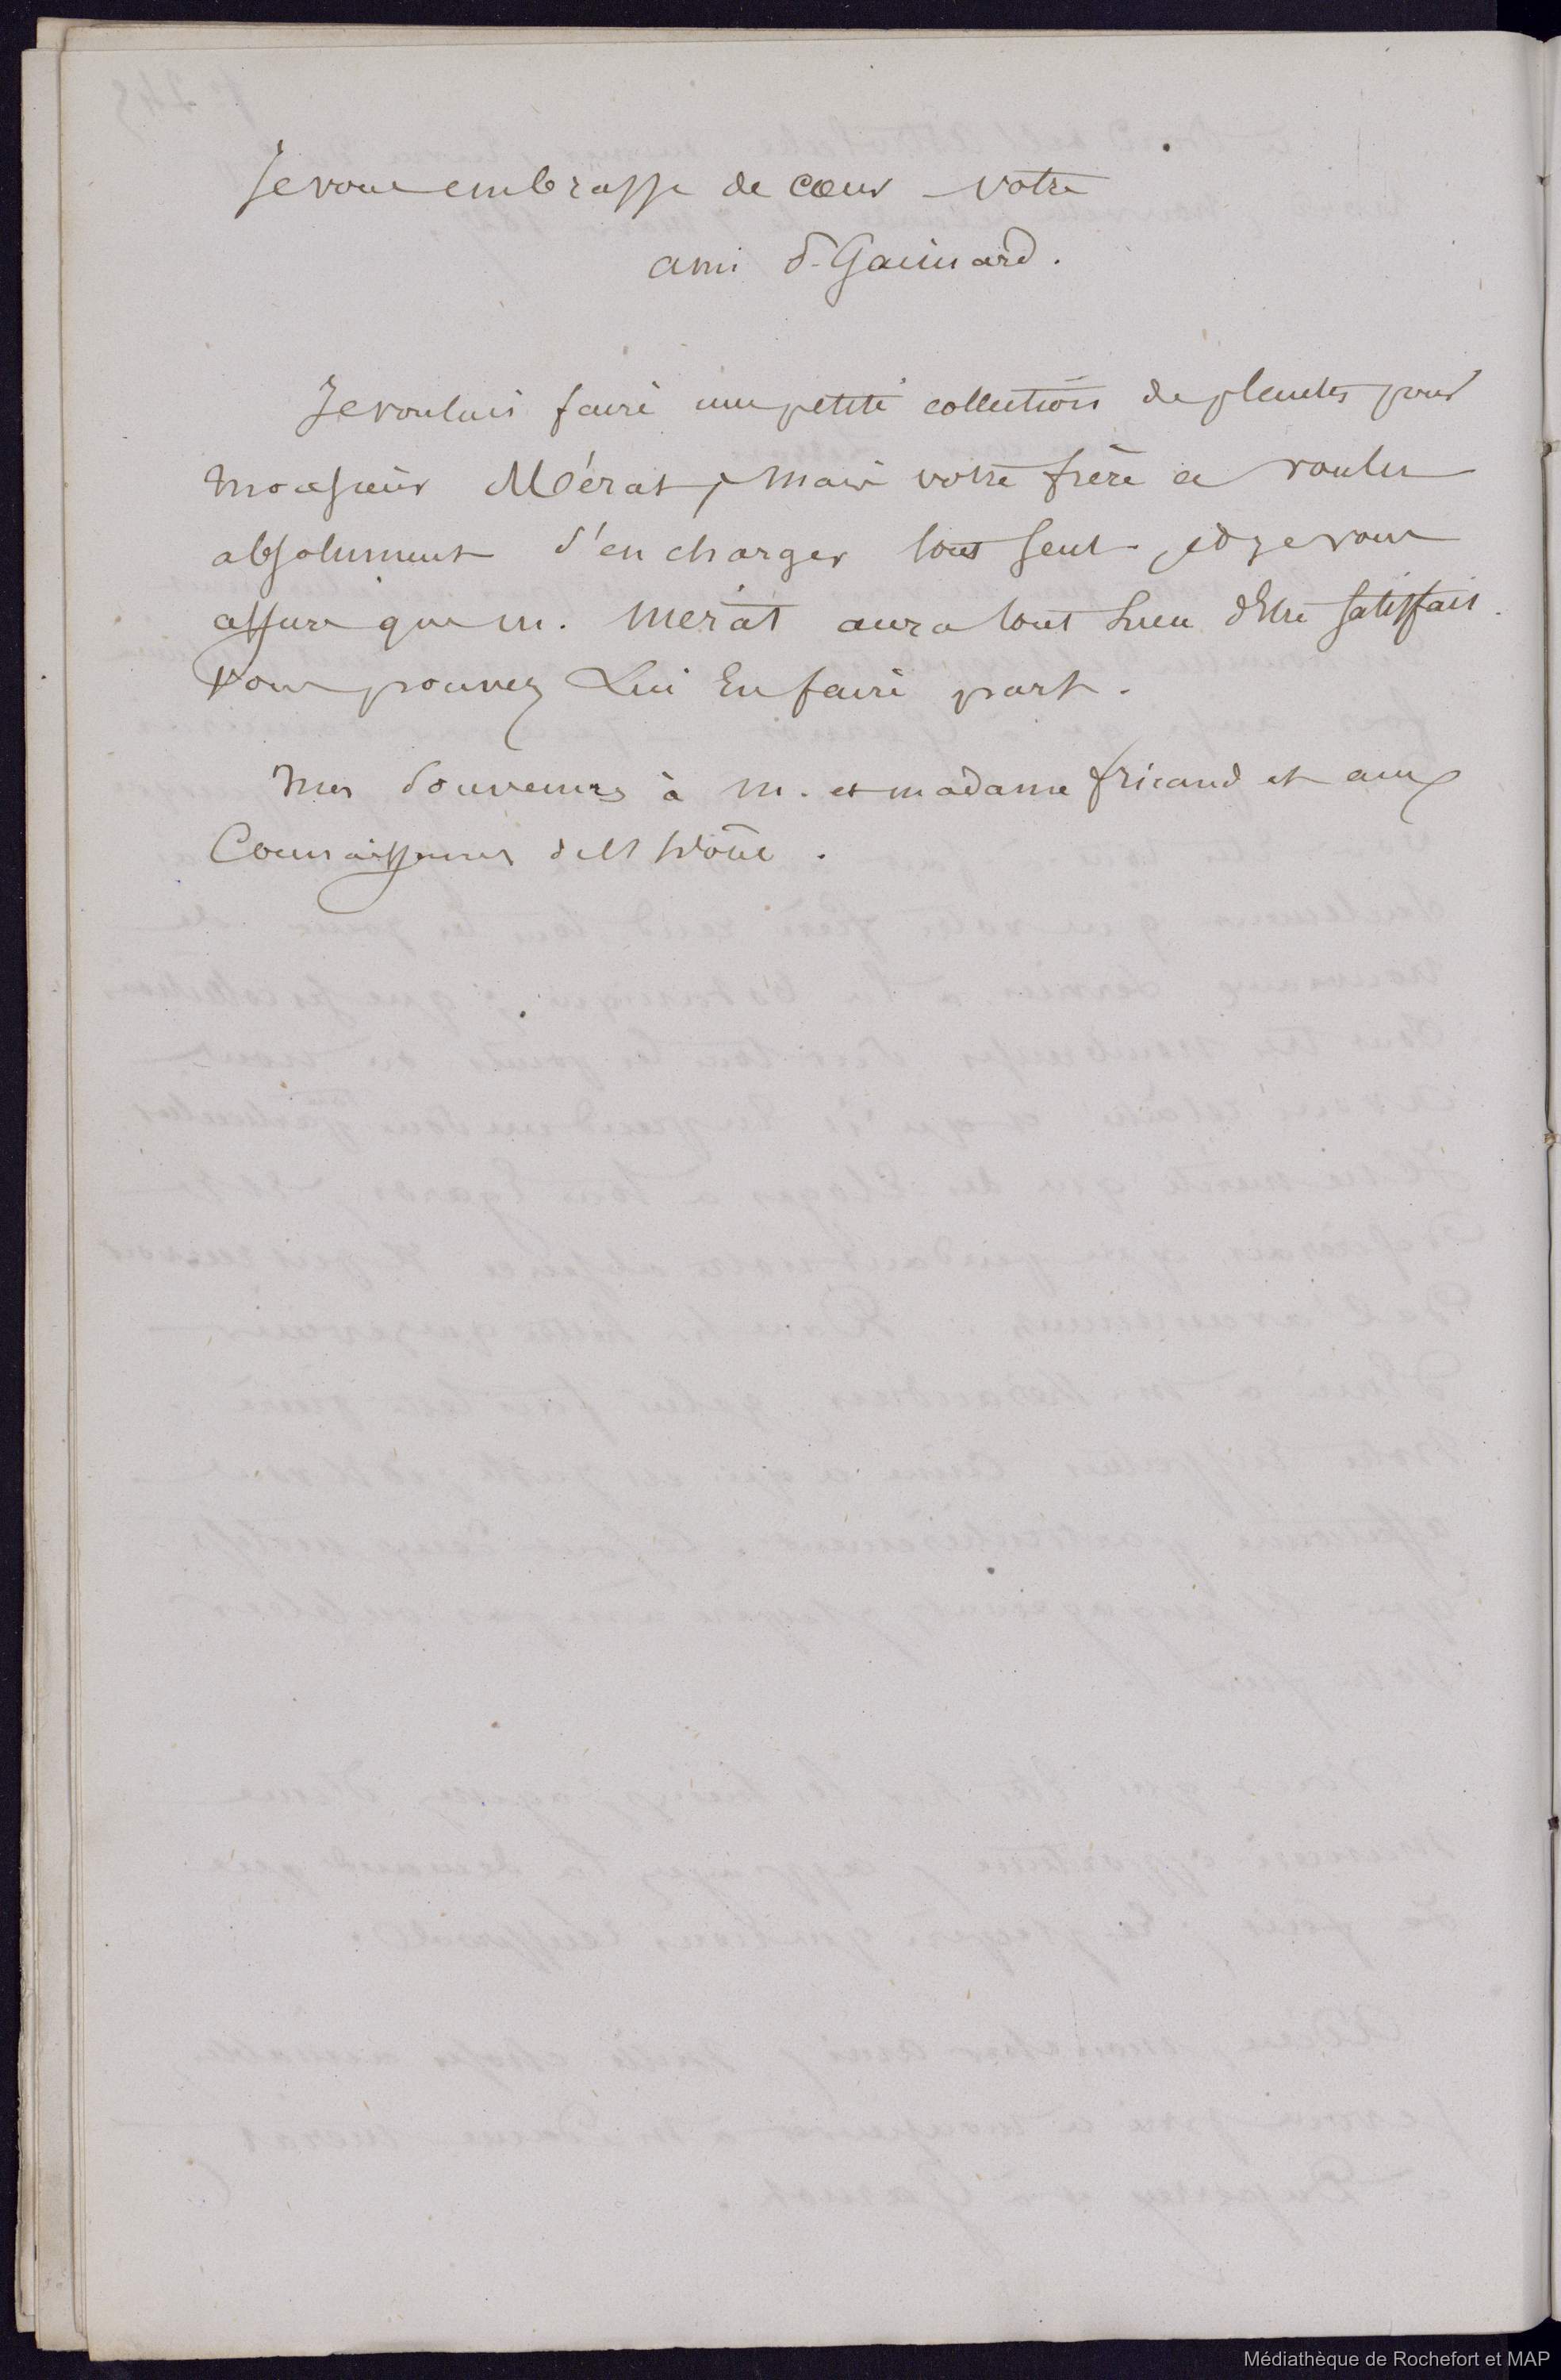 Je vous embrasse de cœur votre
ami S. Gaimard.
Je voulais faire une petite collection de plantes pour
monsieur Mérat, mais votre frère a voulu
absolument s'en charger tout seul, et je vous
assure que m. Merat aura tout lieu d'être satisfait.
vous pouvez Lui En faire part.
Mes Souvenirs à M. et madame fricaud et aux
Connaissances
Médiathèque de Rochefort et MAP